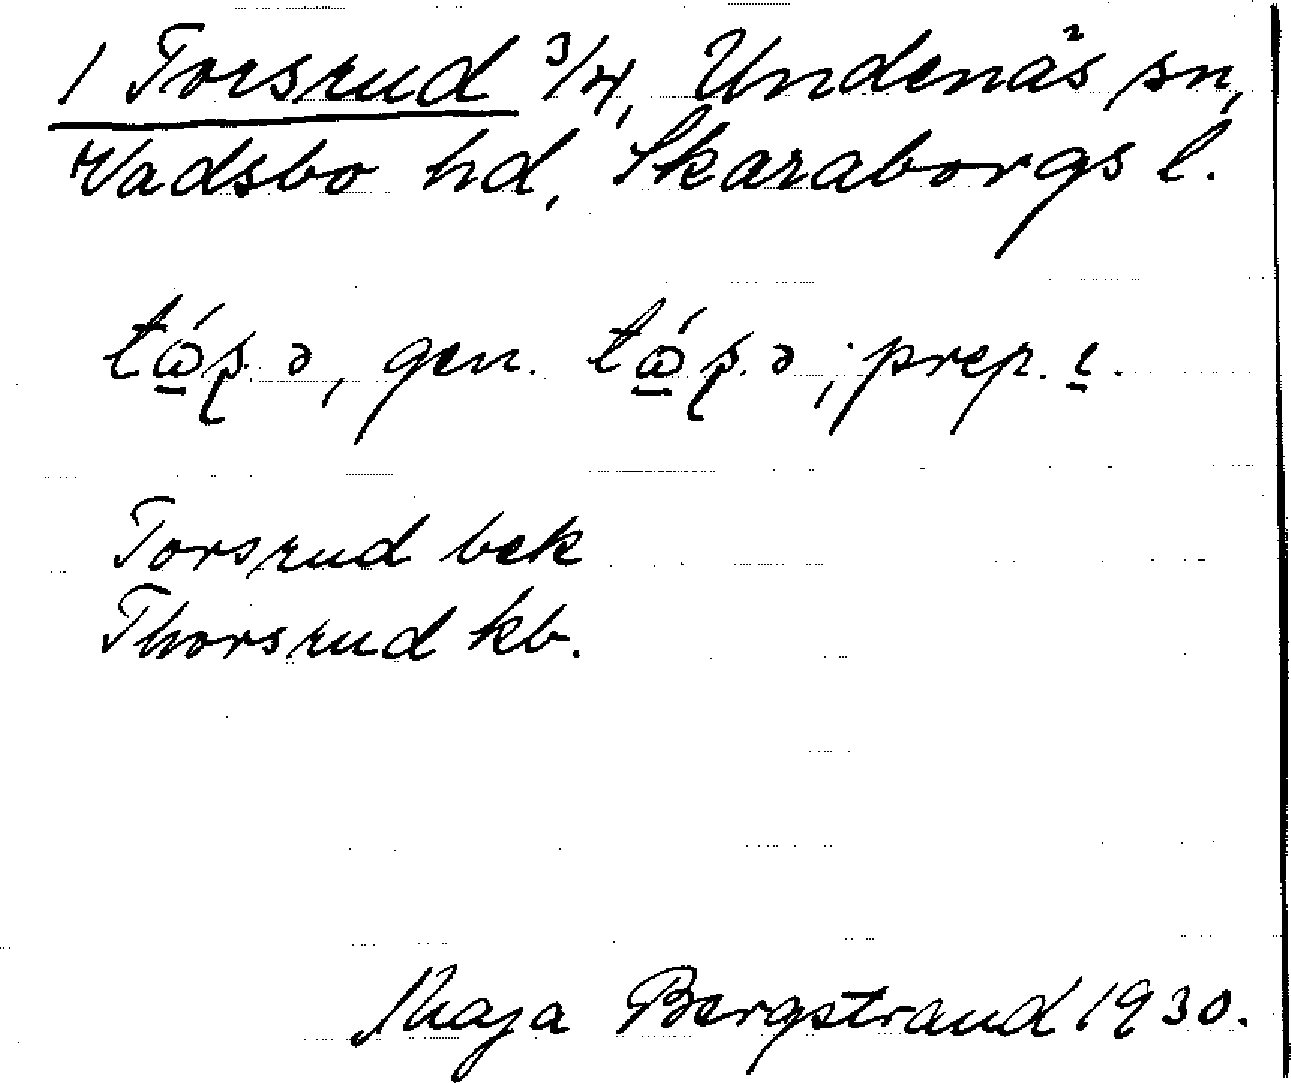 1 Torsrud 3/4, Undenäs sn,
Vadsbo hd, Skaraborgs l.
gen. prep.
Torsrud bek
Thorsrud kb.
Maja Bergstrand 1930.